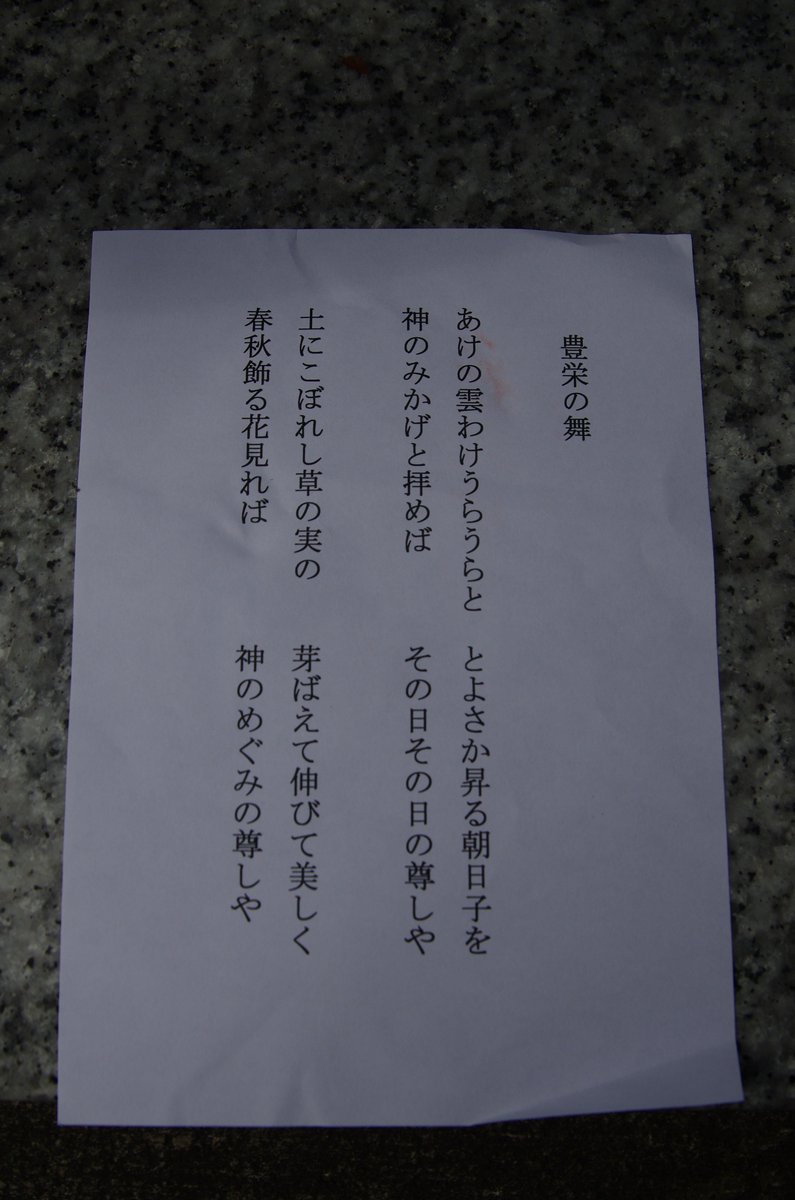 豊栄の舞
あけの雲わけうらうらと　とよさか昇る朝日子を
神のみかげと拝めば　その日その日の尊しや
土にこぼれし草の実の　芽ばえて伸びて美しく
春秋飾る花見れば　神のめぐみの尊しや